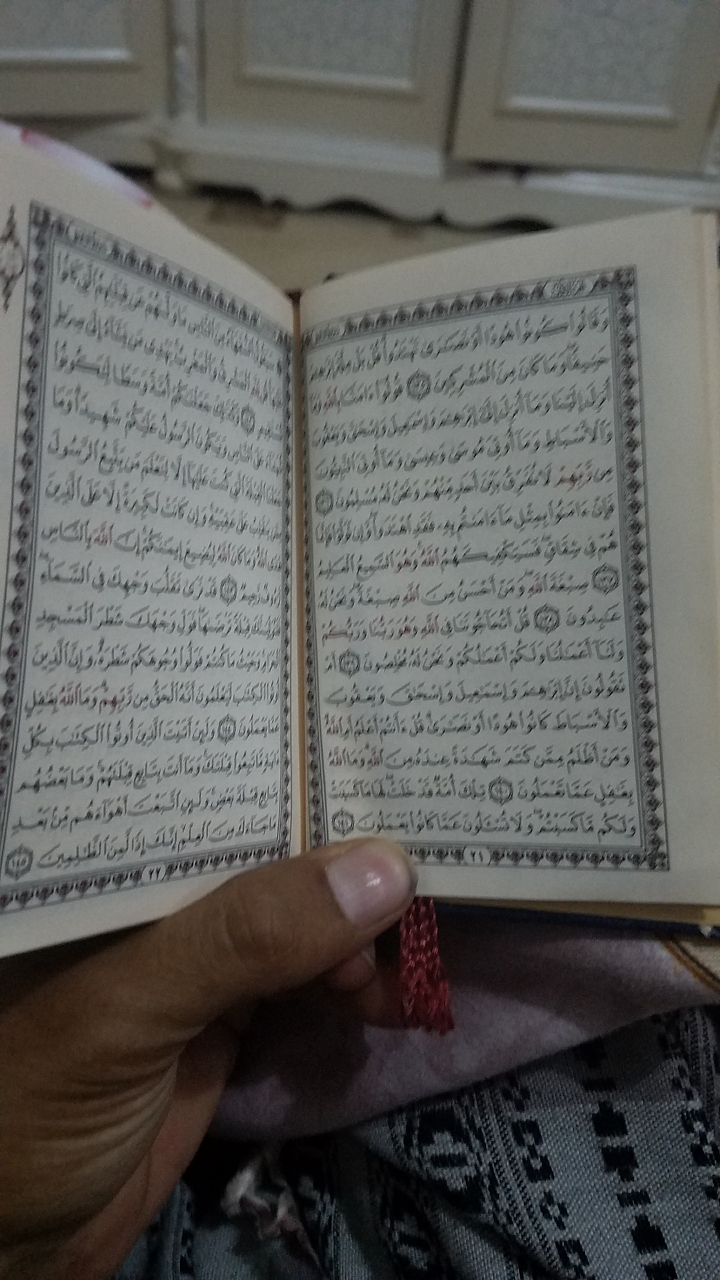 وَقَالُوا۟ كُونُوا۟ هُودًا أَوْ نَصَٰرَىٰ تَهْتَدُوا۟ قُلْ بَلْ مِلَّةَ إِبْرَٰهِـۧمَ
حَنِيفًا وَمَا كَانَ مِنَ ٱلْمُشْرِكِينَ ١٣٥ قُولُوٓا۟ ءَامَنَّا بِٱللَّهِ وَمَآ
أُنزِلَ إِلَيْنَا وَمَآ أُنزِلَ إِلَىٰٓ إِبْرَٰهِـۧمَ وَإِسْمَٰعِيلَ وَإِسْحَٰقَ وَيَعْقُوبَ
وَٱلْأَسْبَاطِ وَمَآ أُوتِىَ مُوسَىٰ وَعِيسَىٰ وَمَآ أُوتِىَ ٱلنَّبِيُّونَ
مِن رَّبِّهِمْ لَا نُفَرِّقُ بَيْنَ أَحَدٍ مِّنْهُمْ وَنَحْنُ لَهُۥ مُسْلِمُونَ ١٣٦
فَإِنْ ءَامَنُوا۟ بِمِثْلِ مَآ ءَامَنتُم بِهِۦ فَقَدِ ٱهْتَدَوا۟ وَّإِن تَوَلَّوْا۟ فَإِنَّمَا
هُمْ فِى شِقَاقٍ فَسَيَكْفِيكَهُمُ ٱللَّهُ وَهُوَ ٱلسَّمِيعُ ٱلْعَلِيمُ
١٣٧ صِبْغَةَ ٱللَّهِ وَمَنْ أَحْسَنُ مِنَ ٱللَّهِ صِبْغَةً وَنَحْنُ لَهُۥ
عَٰبِدُونَ ١٣٨ قُلْ أَتُحَآجُّونَنَا فِى ٱللَّهِ وَهُوَ رَبُّنَا وَرَبُّكُمْ
وَلَنَآ أَعْمَٰلُنَا وَلَكُمْ أَعْمَٰلُكُمْ وَنَحْنُ لَهُۥ مُخْلِصُونَ ١٣٩ أَمْ
تَقُولُونَ إِنَّ إِبْرَٰهِـۧمَ وَإِسْمَٰعِيلَ وَإِسْحَٰقَ وَيَعْقُوبَ
وَٱلْأَسْبَاطَ كَانُوا۟ هُودًا أَوْ نَصَٰرَىٰ قُلْ ءَأَنتُمْ أَعْلَمُ أَمِ ٱللَّهُ
وَمَنْ أَظْلَمُ مِمَّن كَتَمَ شَهَٰدَةً عِندَهُۥ مِنَ ٱللَّهِ وَمَا ٱللَّهُ
بِغَٰفِلٍ عَمَّا تَعْمَلُونَ ١٤٠ تِلْكَ أُمَّةٌ قَدْ خَلَتْ لَهَا مَا كَسَبَتْ
وَلَكُم مَّا كَسَبْتُمْ وَلَا تُسْـَٔلُونَ عَمَّا كَانُوا۟ يَعْمَلُونَ ١٤١
٢١
سَيَقُولُ ٱلسُّفَهَآءُ مِنَ ٱلنَّاسِ مَا وَلَّىٰهُمْ عَن قِبْلَتِهِمُ ٱلَّتِى كَانُوا۟
ٱلْمَشْرِقُ وَٱلْمَغْرِبُ يَهْدِى مَن يَشَآءُ إِلَىٰ صِرَٰطٍ
وَكَذَٰلِكَ جَعَلْنَٰكُمْ أُمَّةً وَسَطًا لِّتَكُونُوا۟
عَلَى ٱلنَّاسِ وَيَكُونَ ٱلرَّسُولُ عَلَيْكُمْ شَهِيدًا وَمَا
ٱلْقِبْلَةَ ٱلَّتِى كُنتَ عَلَيْهَآ إِلَّا لِنَعْلَمَ مَن يَتَّبِعُ ٱلرَّسُولَ
يَنقَلِبُ عَلَىٰ عَقِبَيْهِ وَإِن كَانَتْ لَكَبِيرَةً إِلَّا عَلَى ٱلَّذِينَ
هَدَى ٱللَّهُ وَمَا كَانَ ٱللَّهُ لِيُضِيعَ إِيمَٰنَكُمْ إِنَّ ٱللَّهَ بِٱلنَّاسِ
لَرَءُوفٌ رَّحِيمٌ ١٤٣ قَدْ نَرَىٰ تَقَلُّبَ وَجْهِكَ فِى ٱلسَّمَآءِ
فَلَنُوَلِّيَنَّكَ قِبْلَةً تَرْضَىٰهَا فَوَلِّ وَجْهَكَ شَطْرَ ٱلْمَسْجِدِ
ٱلْحَرَامِ وَحَيْثُ مَا كُنتُمْ فَوَلُّوا۟ وُجُوهَكُمْ شَطْرَهُۥ وَإِنَّ ٱلَّذِينَ
أُوتُوا۟ ٱلْكِتَٰبَ لَيَعْلَمُونَ أَنَّهُ ٱلْحَقُّ مِن رَّبِّهِمْ وَمَا ٱللَّهُ بِغَٰفِلٍ
عَمَّا يَعْمَلُونَ ١٤٤ وَلَئِنْ أَتَيْتَ ٱلَّذِينَ أُوتُوا۟ ٱلْكِتَٰبَ بِكُلِّ
ءَايَةٍ مَّا تَبِعُوا۟ قِبْلَتَكَ وَمَآ أَنتَ بِتَابِعٍ قِبْلَتَهُمْ وَمَا بَعْضُهُم
بِتَابِعٍ قِبْلَةَ بَعْضٍ وَلَئِنِ ٱتَّبَعْتَ أَهْوَآءَهُم مِّنۢ بَعْدِ
مَا جَآءَكَ مِنَ ٱلْعِلْمِ إِنَّكَ إِذًا لَّمِنَ ٱلظَّٰلِمِينَ ١٤٥
٢٢